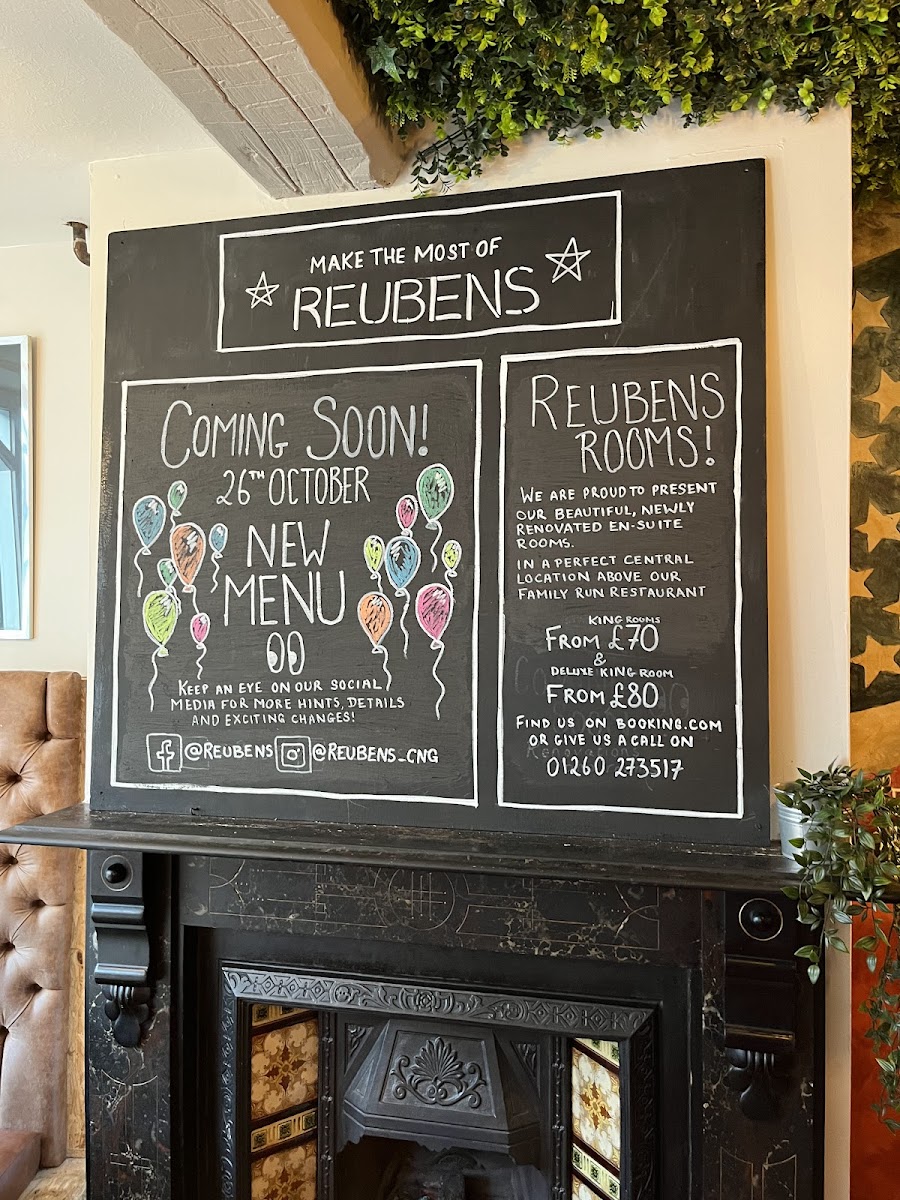 MAKE THE MOST OF
REUBENS
COMING SOON!
26TH OCTOBER
NEW
MENU
KEEP AN EYE ON OUR SOCIAL
MEDIA FOR MORE HINTS, DETAILS
AND EXCITING CHANGES!
@REUBENS @REUBENS_CNG
REUBENS
ROOMS!
WE ARE PROUD TO PRESENT
OUR BEAUTIFUL, NEWLY
RENOVATED EN-SUITE
ROOMS.
IN A PERFECT CENTRAL
LOCATION ABOVE OUR
FAMILY RUN RESTAURANT
KING ROOMS
FROM £70
&
DELUXE KING ROOM
FROM £80
FIND US ON BOOKING.COM
OR GIVE US A CALL ON
01260 273517